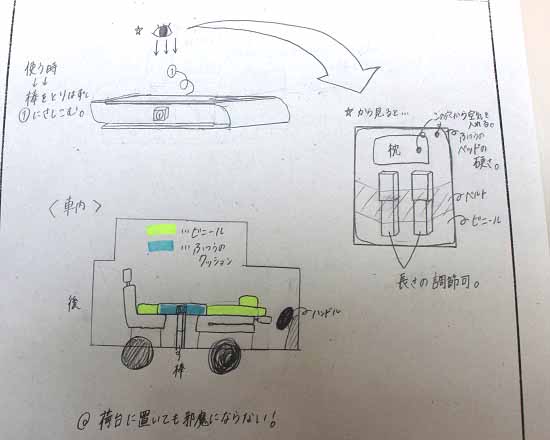 ☆
使う時
↓↓
棒をとりはずし
①にさしこむ。
①
☆から見ると…
この穴から空気を
入れる。
ふつうの
ベッドの
硬さ。
枕
ベルト
ビニール
長さの調節可。
〈車内〉
…ビニール
…ふつうの
クッション
後
ハンドル
棒
◎ 荷台に置いても邪魔にならない!